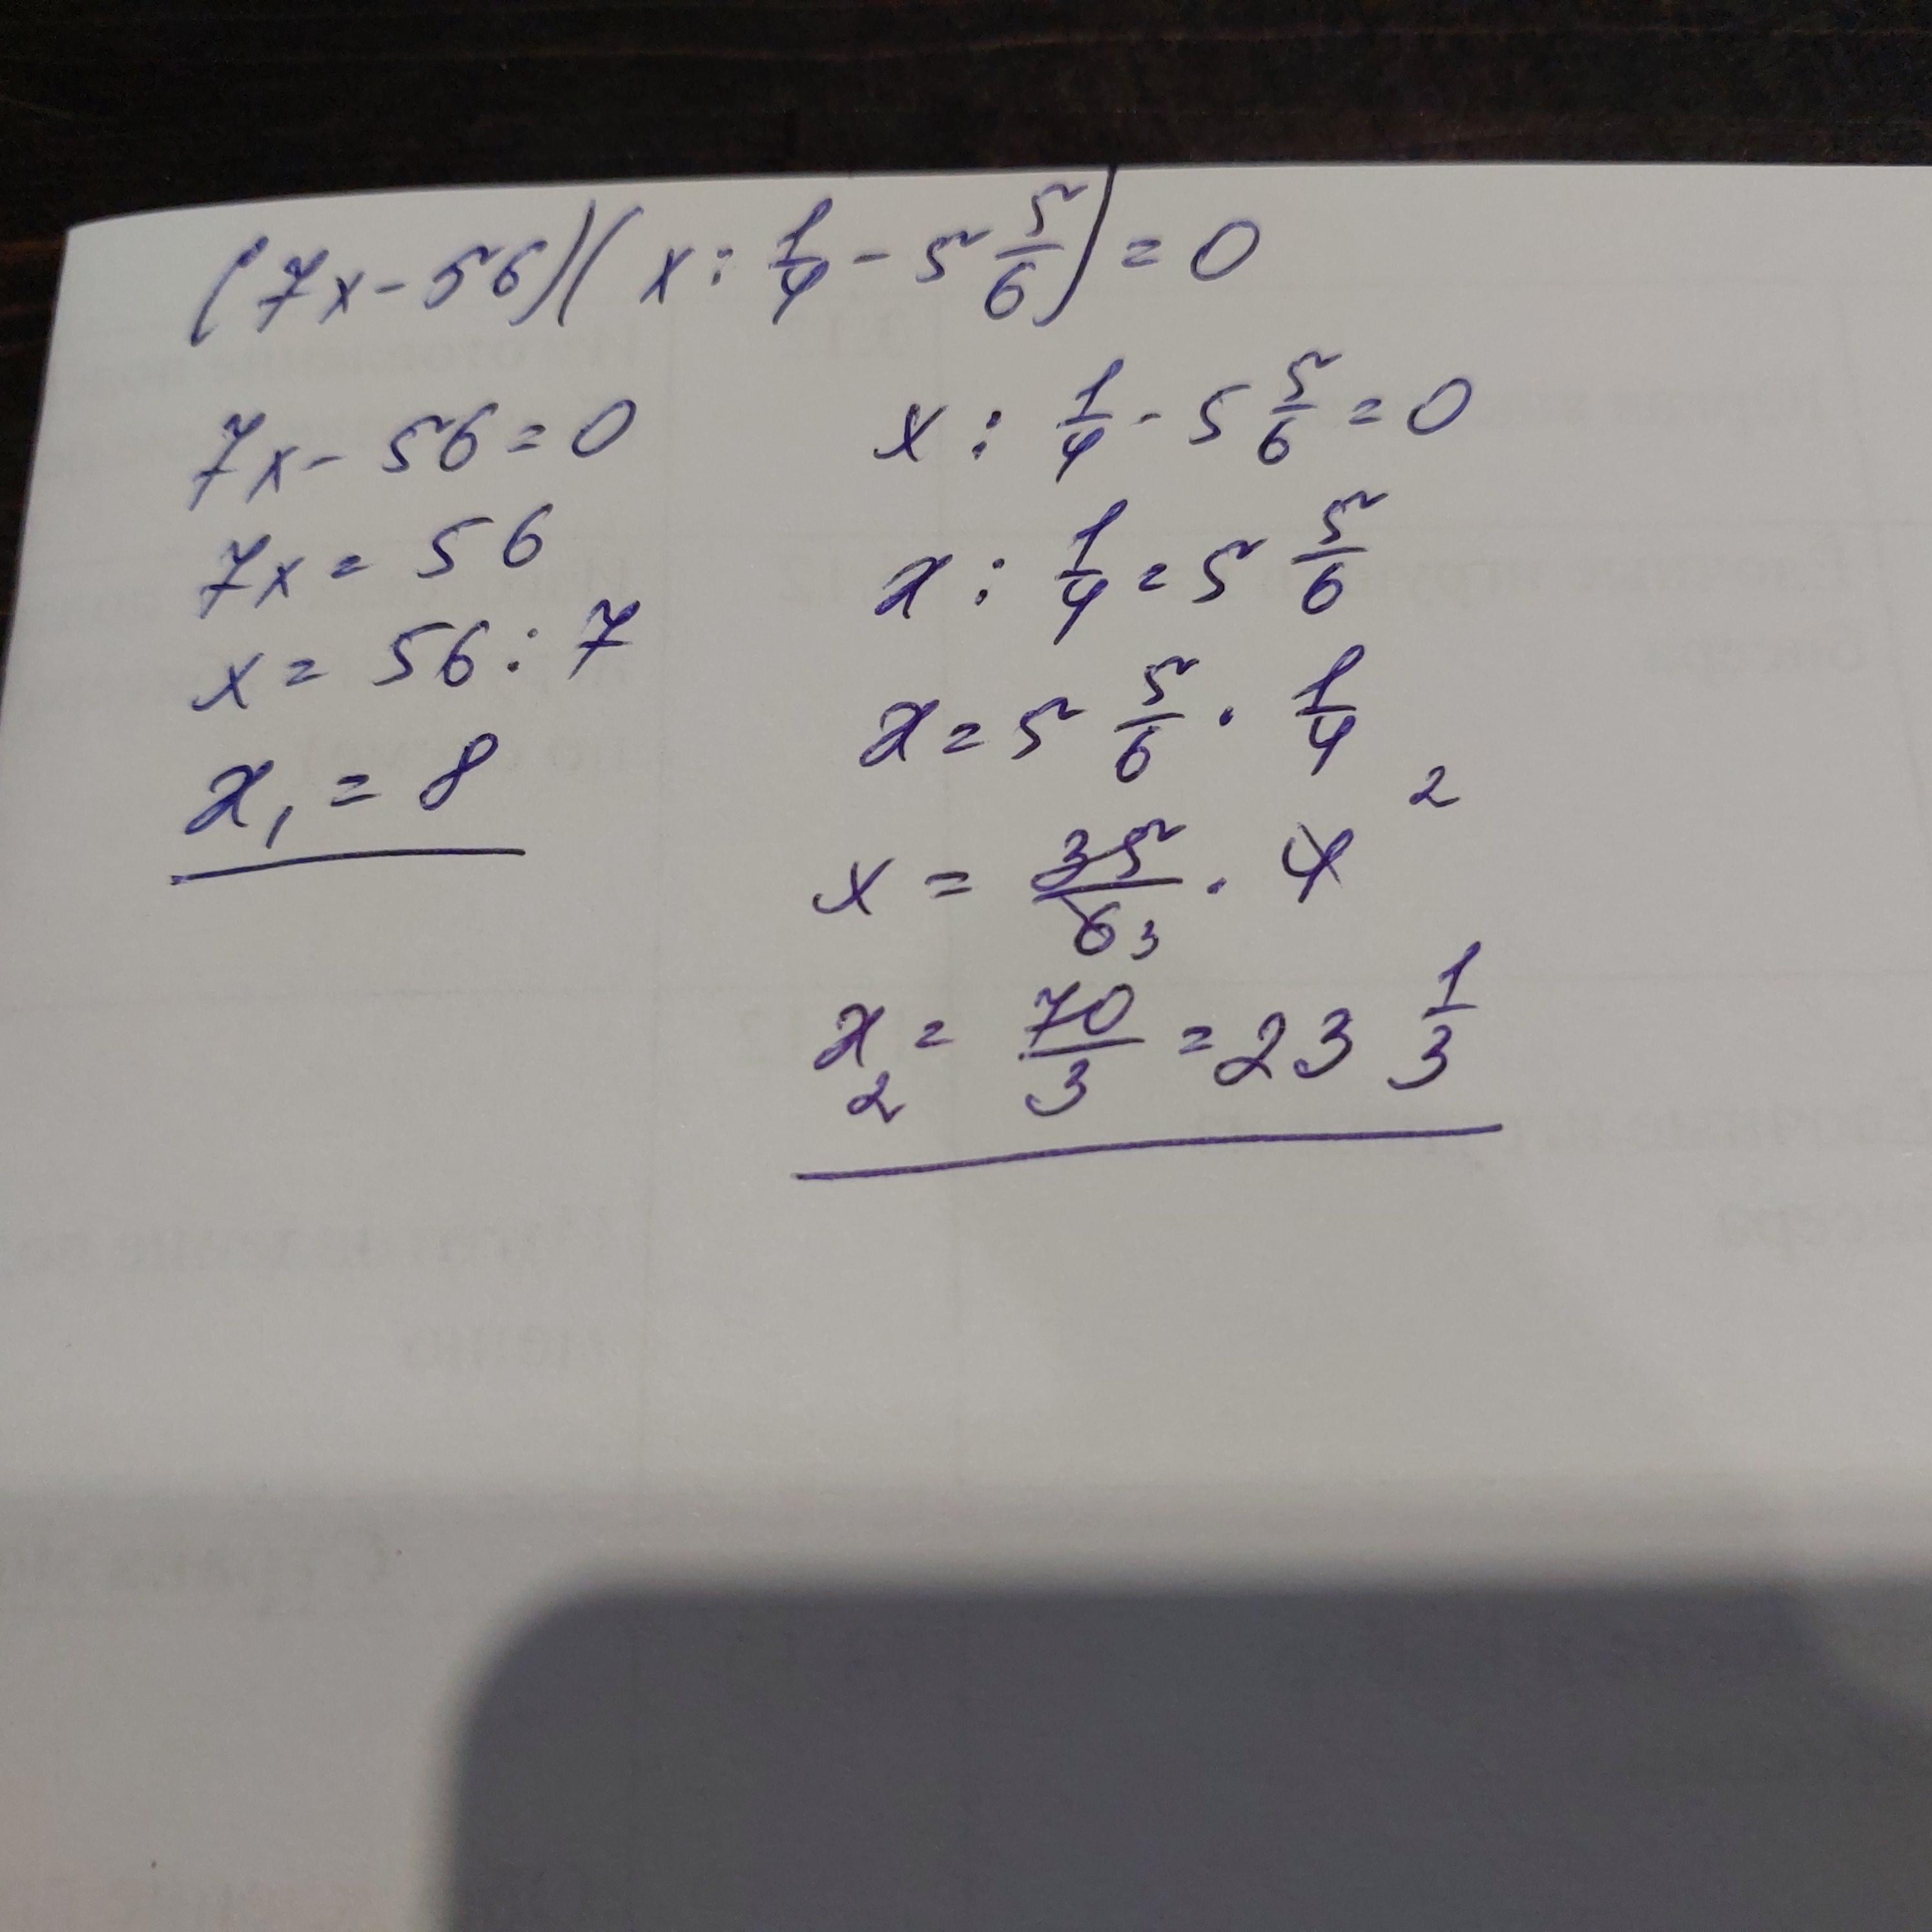 (7x-56)(x:1/4-5 5/6)=0
7x-56=0
7x=56
x=56:7
x₁=8
x:1/4-5 5/6=0
x:1/4=5 5/6
x=5 5/6·1/4
x=35/6 3·4 2
x₂=70/3=23 1/3